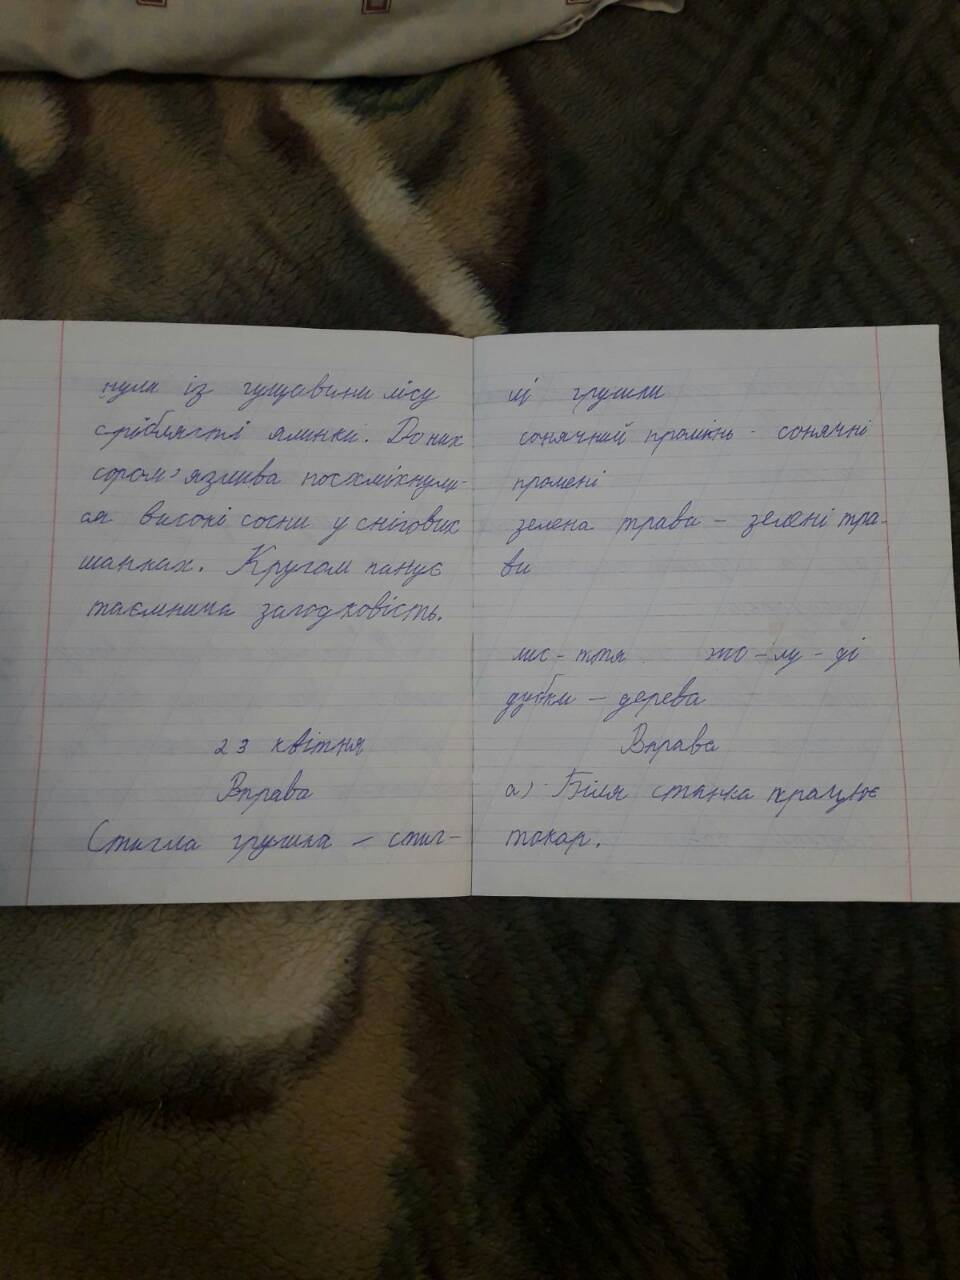 нули із гущавини лісу
сріблясті ялинки. До них
сором'язлива посхміхнули-
ся високі сосни у снігових
шапках. Кругом панує
таємнича загадковість.
23 квітня
Вправа
Стигла грушка – стиг-
лі грушки
сонячний промінь - сонячні
промені
зелена трава – зелені тра-
ви
лис - ття жо - лу - ді
дубки – дерева
Вправа
а) Біля станка працює
токар.